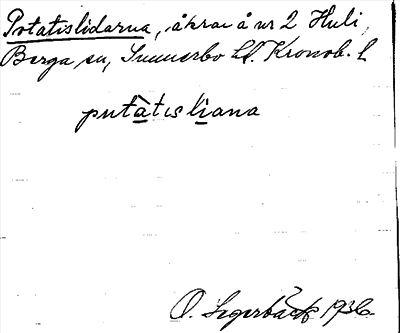 Potatislidarna, åkrar å nr 2 Huli,
Berga sn, Sunnerbo hd. Kronob. l
putàtislìana
O. Segerbäck 1936.